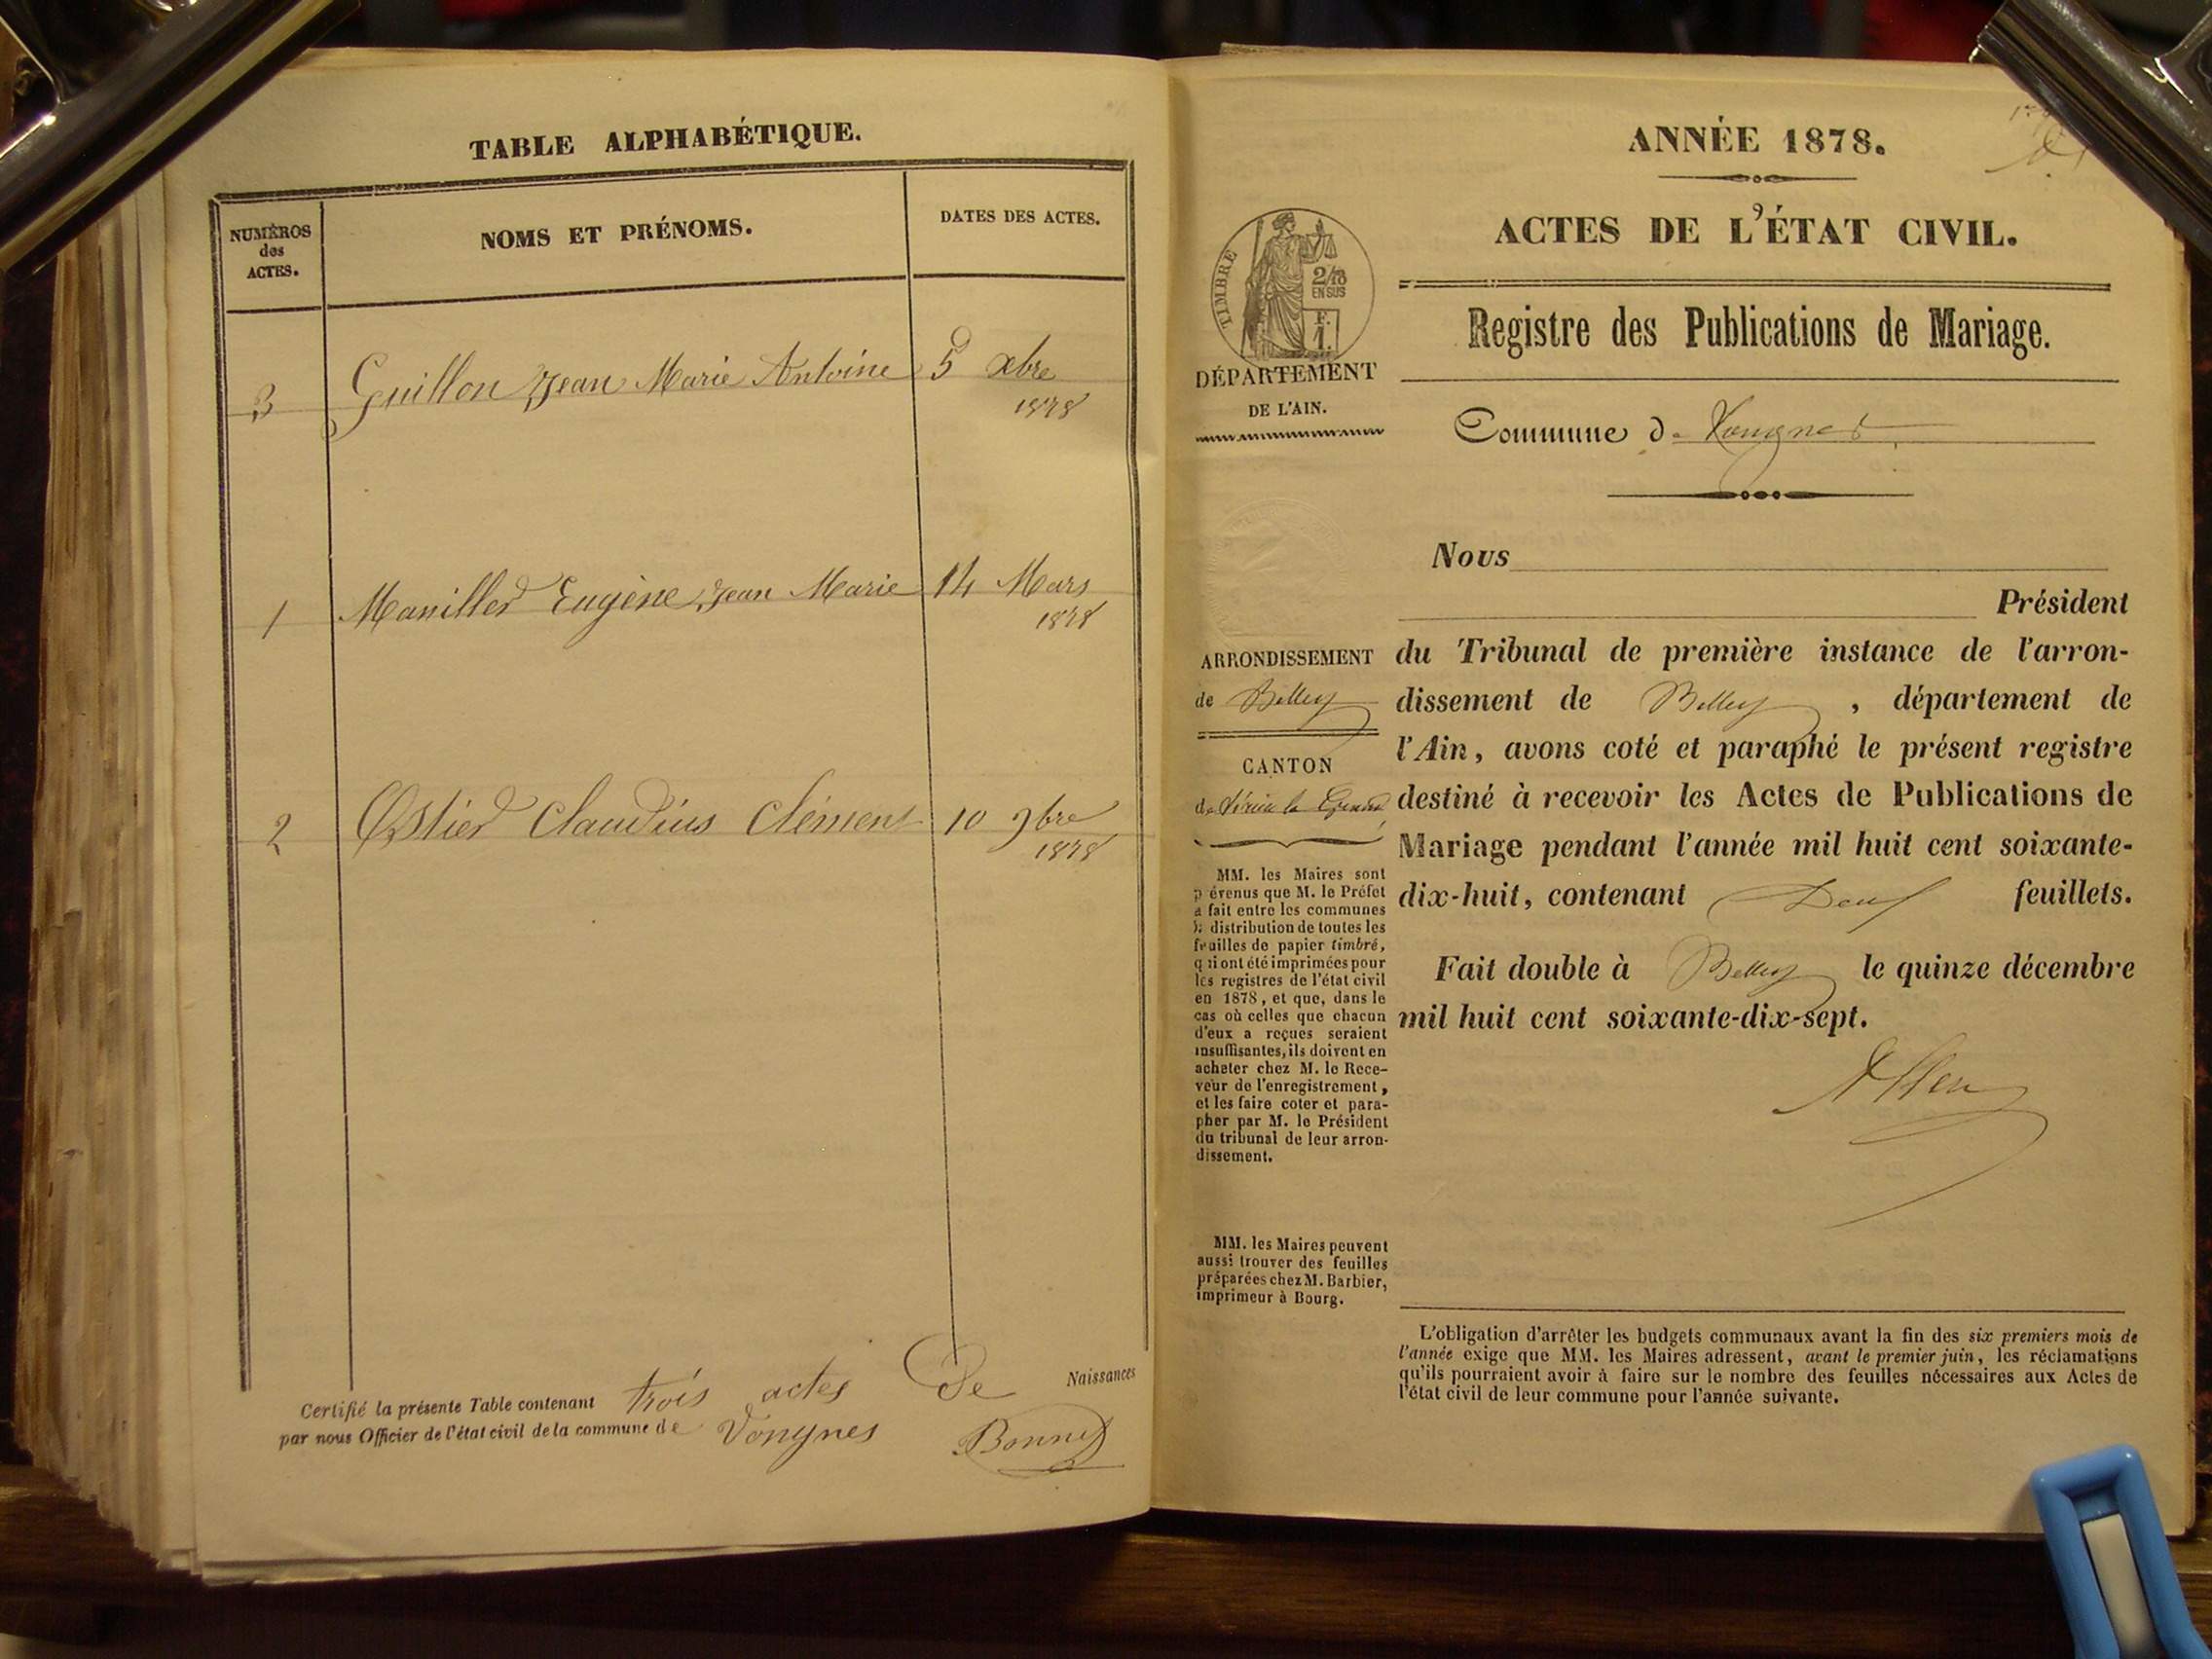 TABLE ALPHABÉTIQUE.
NUMÉROS
des
ACTES.
NOMS ET PRÉNOMS.
DATES DES ACTES.
3 Guillon Jean Marie Antoine 5 xbre
1878
1 Manilles Eugène Jean Marie 14 Mars
1878
2 Ostier Claudius Clément 10 9bre
1878
Certifié la présente Table contenant trois actes de Naissances
par nous Officier de l'état civil de la commune de Vongnes
Bonnet
ANNÉE 1878.
ACTES DE L'ÉTAT CIVIL.
TIMBRE
2/10
EN SUS
F.
1.
Registre des Publications de Mariage.
DÉPARTEMENT
DE L'AIN.
Commune de Vongnes
Nous
Président
du Tribunal de première instance de l'arron-
dissement de Belley, département de
l'Ain, avons coté et paraphé le présent registre
destiné à recevoir les Actes de Publications de
Mariage pendant l'année mil huit cent soixante-
dix-huit, contenant Deux feuillets.
Fait double à Belley le quinze décembre
mil huit cent soixante-dix-sept.
ARRONDISSEMENT
de Belley
CANTON
de la
MM. les Maires sont
prévenus que M. le Préfet
a fait entre les communes
la distribution de toutes les
feuilles de papier timbré,
qui ont été imprimées pour
les registres de l'état civil
en 1878, et que, dans le
cas où celles que chacun
d'eux a reçues seraient
insuffisantes, ils doivent en
acheter chez M. le Rece-
veur de l'enregistrement,
et les faire coter et para-
pher par M. le Président
du tribunal de leur arron-
dissement.
MM. les Maires peuvent
aussi trouver des feuilles
préparées chez M. Barbier,
imprimeur à Bourg.
L'obligation d'arrêter les budgets communaux avant la fin des six premiers mois de
l'année exige que MM. les Maires adressent, avant le premier juin, les réclamations
qu'ils pourraient avoir à faire sur le nombre des feuilles nécessaires aux Actes de
l'état civil de leur commune pour l'année suivante.